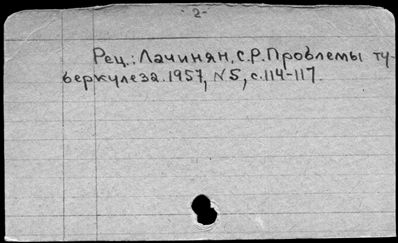 -2-
Рец.: Лачинян, С.Р. Проблемы ту-
беркулеза. 1957, N5, с.114-117.